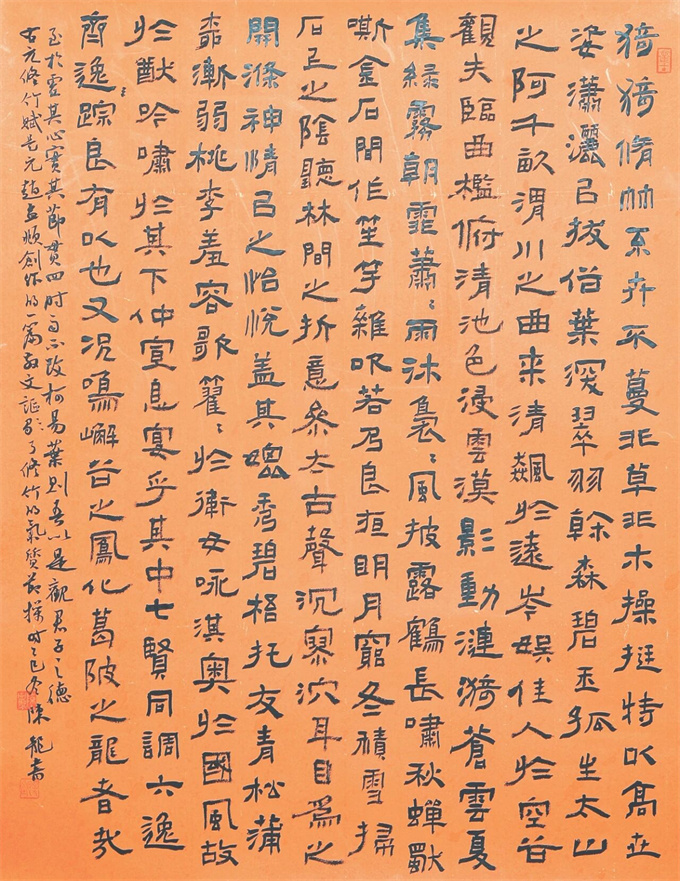 猗猗脩竹系卉不蔓非草非木操挺特以高世
姿瀟灑以拔俗葉深翠羽榦森碧玉孤生太山
之阿千畝渭川之曲来清飆於遠岑娱佳人於空谷
觀夫臨曲檻俯清池色浸雲漠影動漣漪蒼雲夏
集緑霧朝霏蕭〻雨沐裊〻風披露鶴長嘯秋蟬獸
嘶金石間作笙竽雜吹若乃良夜明月窮冬積雪掃
石上之陰聽林間之折意參太古聲沉寥泬耳目爲之
開滌神情以之怡悅盖其媲秀碧梧托友青松蒲
柳漸弱桃李羞容歌籊〻於衛女咏淇奥於國風故
於猷吟嘯於其下仲宣息宴乎其中七賢同調六逸
齊逸踪良有以也又况鳴嶰谷之鳳化葛陂之龍者哉
至於虚其心實其節貫四时而不改柯易葉則吾以是觀君子之德
右元脩竹賦是元趙孟頫創作的一篇散文了修竹的氣质節操时乙巳冬陳龍書